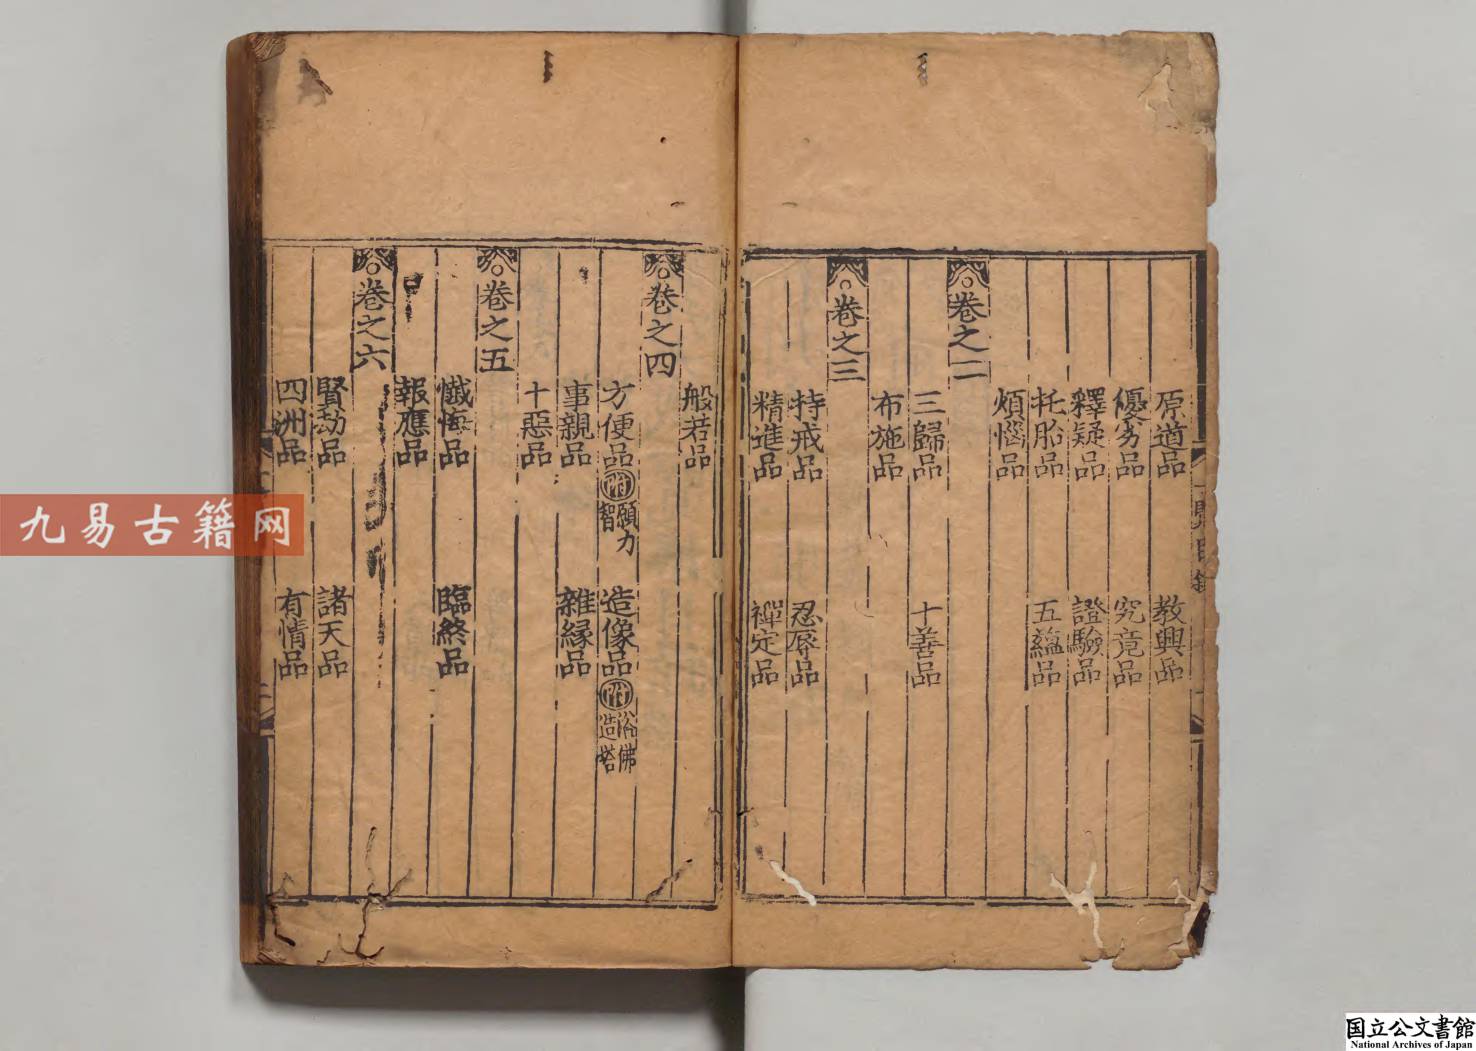 原道品　教興品
優劣品　究竟品
釋疑品　證驗品
托胎品　五蘊品
煩惱品
卷之二
三歸品　十善品
布施品
卷之三
持戒品　忍辱品
精進品　禪定品
般若品
卷之四
方便品 附 願力 智　造像品 附 浴佛 造塔
事親品　雜緣品
十惡品
卷之五
懺悔品　臨終品
報應品
卷之六
賢劫品　諸天品
四洲品　有情品
九易古籍网
国立公文書館
National Archives of Japan